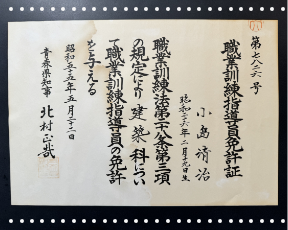 第七八二六号
職業訓練指導員免許証
小島清治
昭和二六年二月十九日生
職業訓練法第二十八条第三項
の規定により建築科につい
て職業訓練指導員の免許
を与える
昭和五十五年五月二十二日
青森県知事
北村正哉